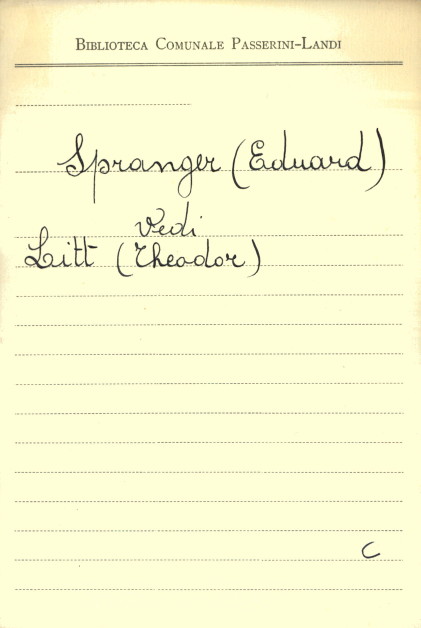 Biblioteca Comunale Passerini-Landi
Spranger (Eduard)
Vedi
Litt (Theodor)
C